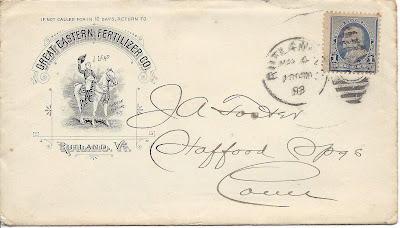 IF NOT CALLED FOR IN 10 DAYS, RETURN TO
GREAT EASTERN FERTILIZER CO.
I LEAD
RUTLAND, VT.
RUTLAND
93
1 1
J A Foster
Stafford Spgs
Conn